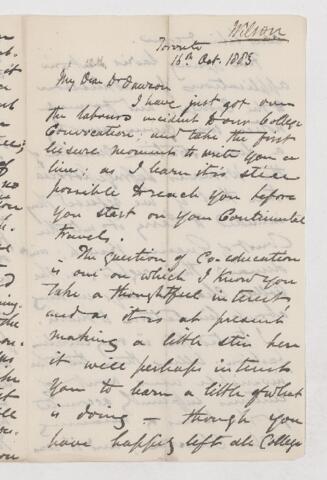 Wilson
Toronto
16th Oct. 1883
My Dear Dr Dawson
I have just got over
the labours incident to our College
Convocation; and take the first
leisure moments to write you a
line; as I learn it is still
possible to reach you before
you start on your Continental
travels.
The question of Co-education
is one on which I know you
take a thoughtful interest
and as it is at present
making a little stir here
it will perhaps interest
you to learn a little of what
is doing — though you
have happily left all College